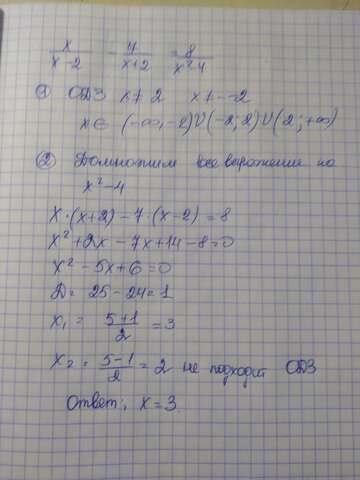 x/(x-2) - 7/(x+2) = 8/(x²-4)
① ОДЗ x≠2 x≠-2
x∈ (-∞,-2)∪(-2;2)∪(2;+∞)
② Домножим все выражение на
x²-4
x·(x+2)-7·(x-2)=8
x²+2x-7x+14-8=0
x²-5x+6=0
D=25-24=1
x₁ = (5+1)/2 =3
x₂ = (5-1)/2 = 2 не подходит ОДЗ
Ответ: x=3.